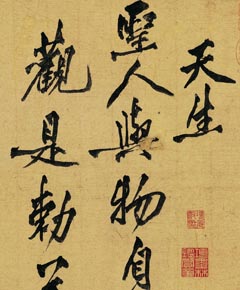 天生
聖人與物自
觀是勅